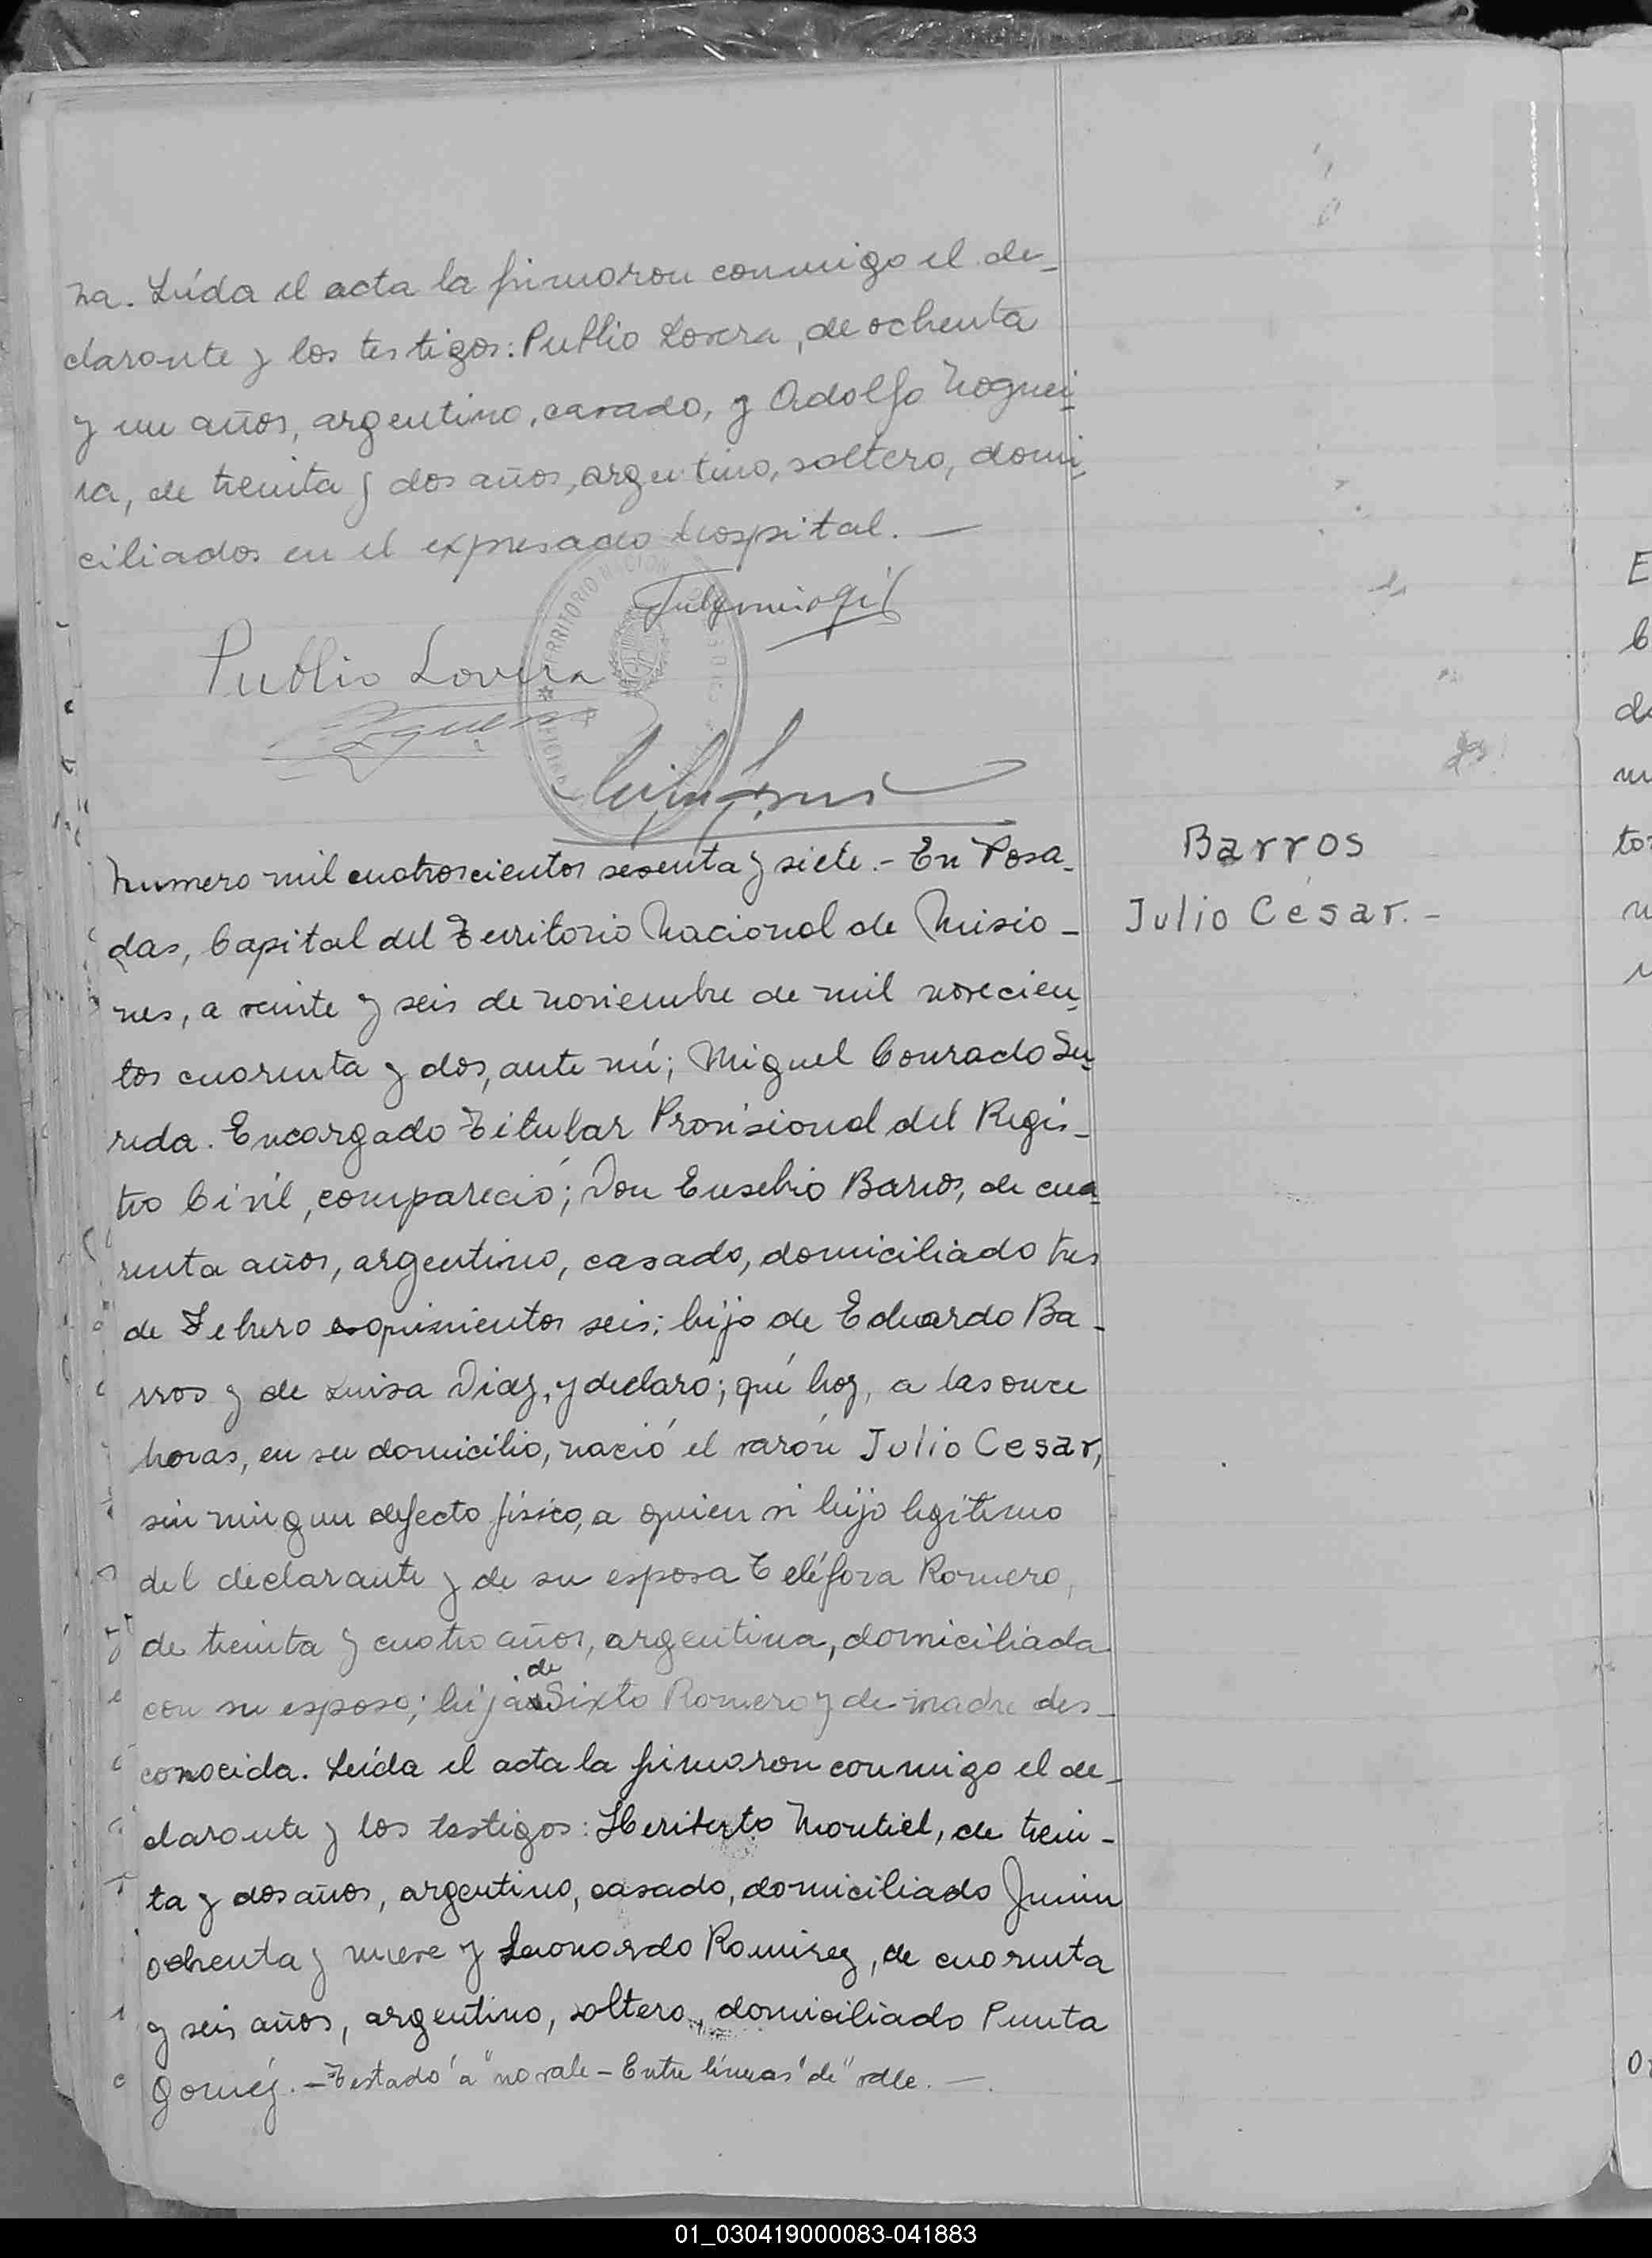 na. Leída el acta la firmaron conmigo el de-
clarante y los testigos: Publio Lovera, de ochenta
y un años, argentino, casado, y Adolfo Noguei-
ra, de treinta y dos años, argentino, soltero, domi-
ciliados en el expresado hospital. —
TERRITORIO NACION
Publio Lovera
Numero mil cuatrocientos sesenta y siete.- En Posa-
das, Capital del Territorio Nacional de Misio-
nes, a veinte y seis de noviembre de mil novecien-
tos cuarenta y dos, ante mí; Miguel Conrado
Encargado Titular Provisional del Regis-
tro Civil, compareció; Don Eusebio Barros, de cua-
renta años, argentino, casado, domiciliado tres
de Febrero quinientos seis; hijo de Eduardo Ba-
rros y de Luisa Diaz, y declaró; qué hoy, a las once
horas, en su domicilio, nació el varón Julio Cesar,
sin ningun defecto físico, a quien vi hijo legítimo
del declarante y de su esposa Teléfora Romero,
de treinta y cuatro años, argentina, domiciliada
de
con su esposo; hija Sixto Romero y de madre des-
conocida. Leída el acta la firmaron conmigo el de-
clarante y los testigos: Heriberto Montiel, de trein-
ta y dos años, argentino, casado, domiciliado Junin
ochenta y nueve y Leonardo Ramirez, de cuarenta
y seis años, argentino, soltero, domiciliado Punta
Goméz. - Testado "a" no vale - Entre líneas "de" vale. —.
Barros
Julio César. -
01_030419000083-041883